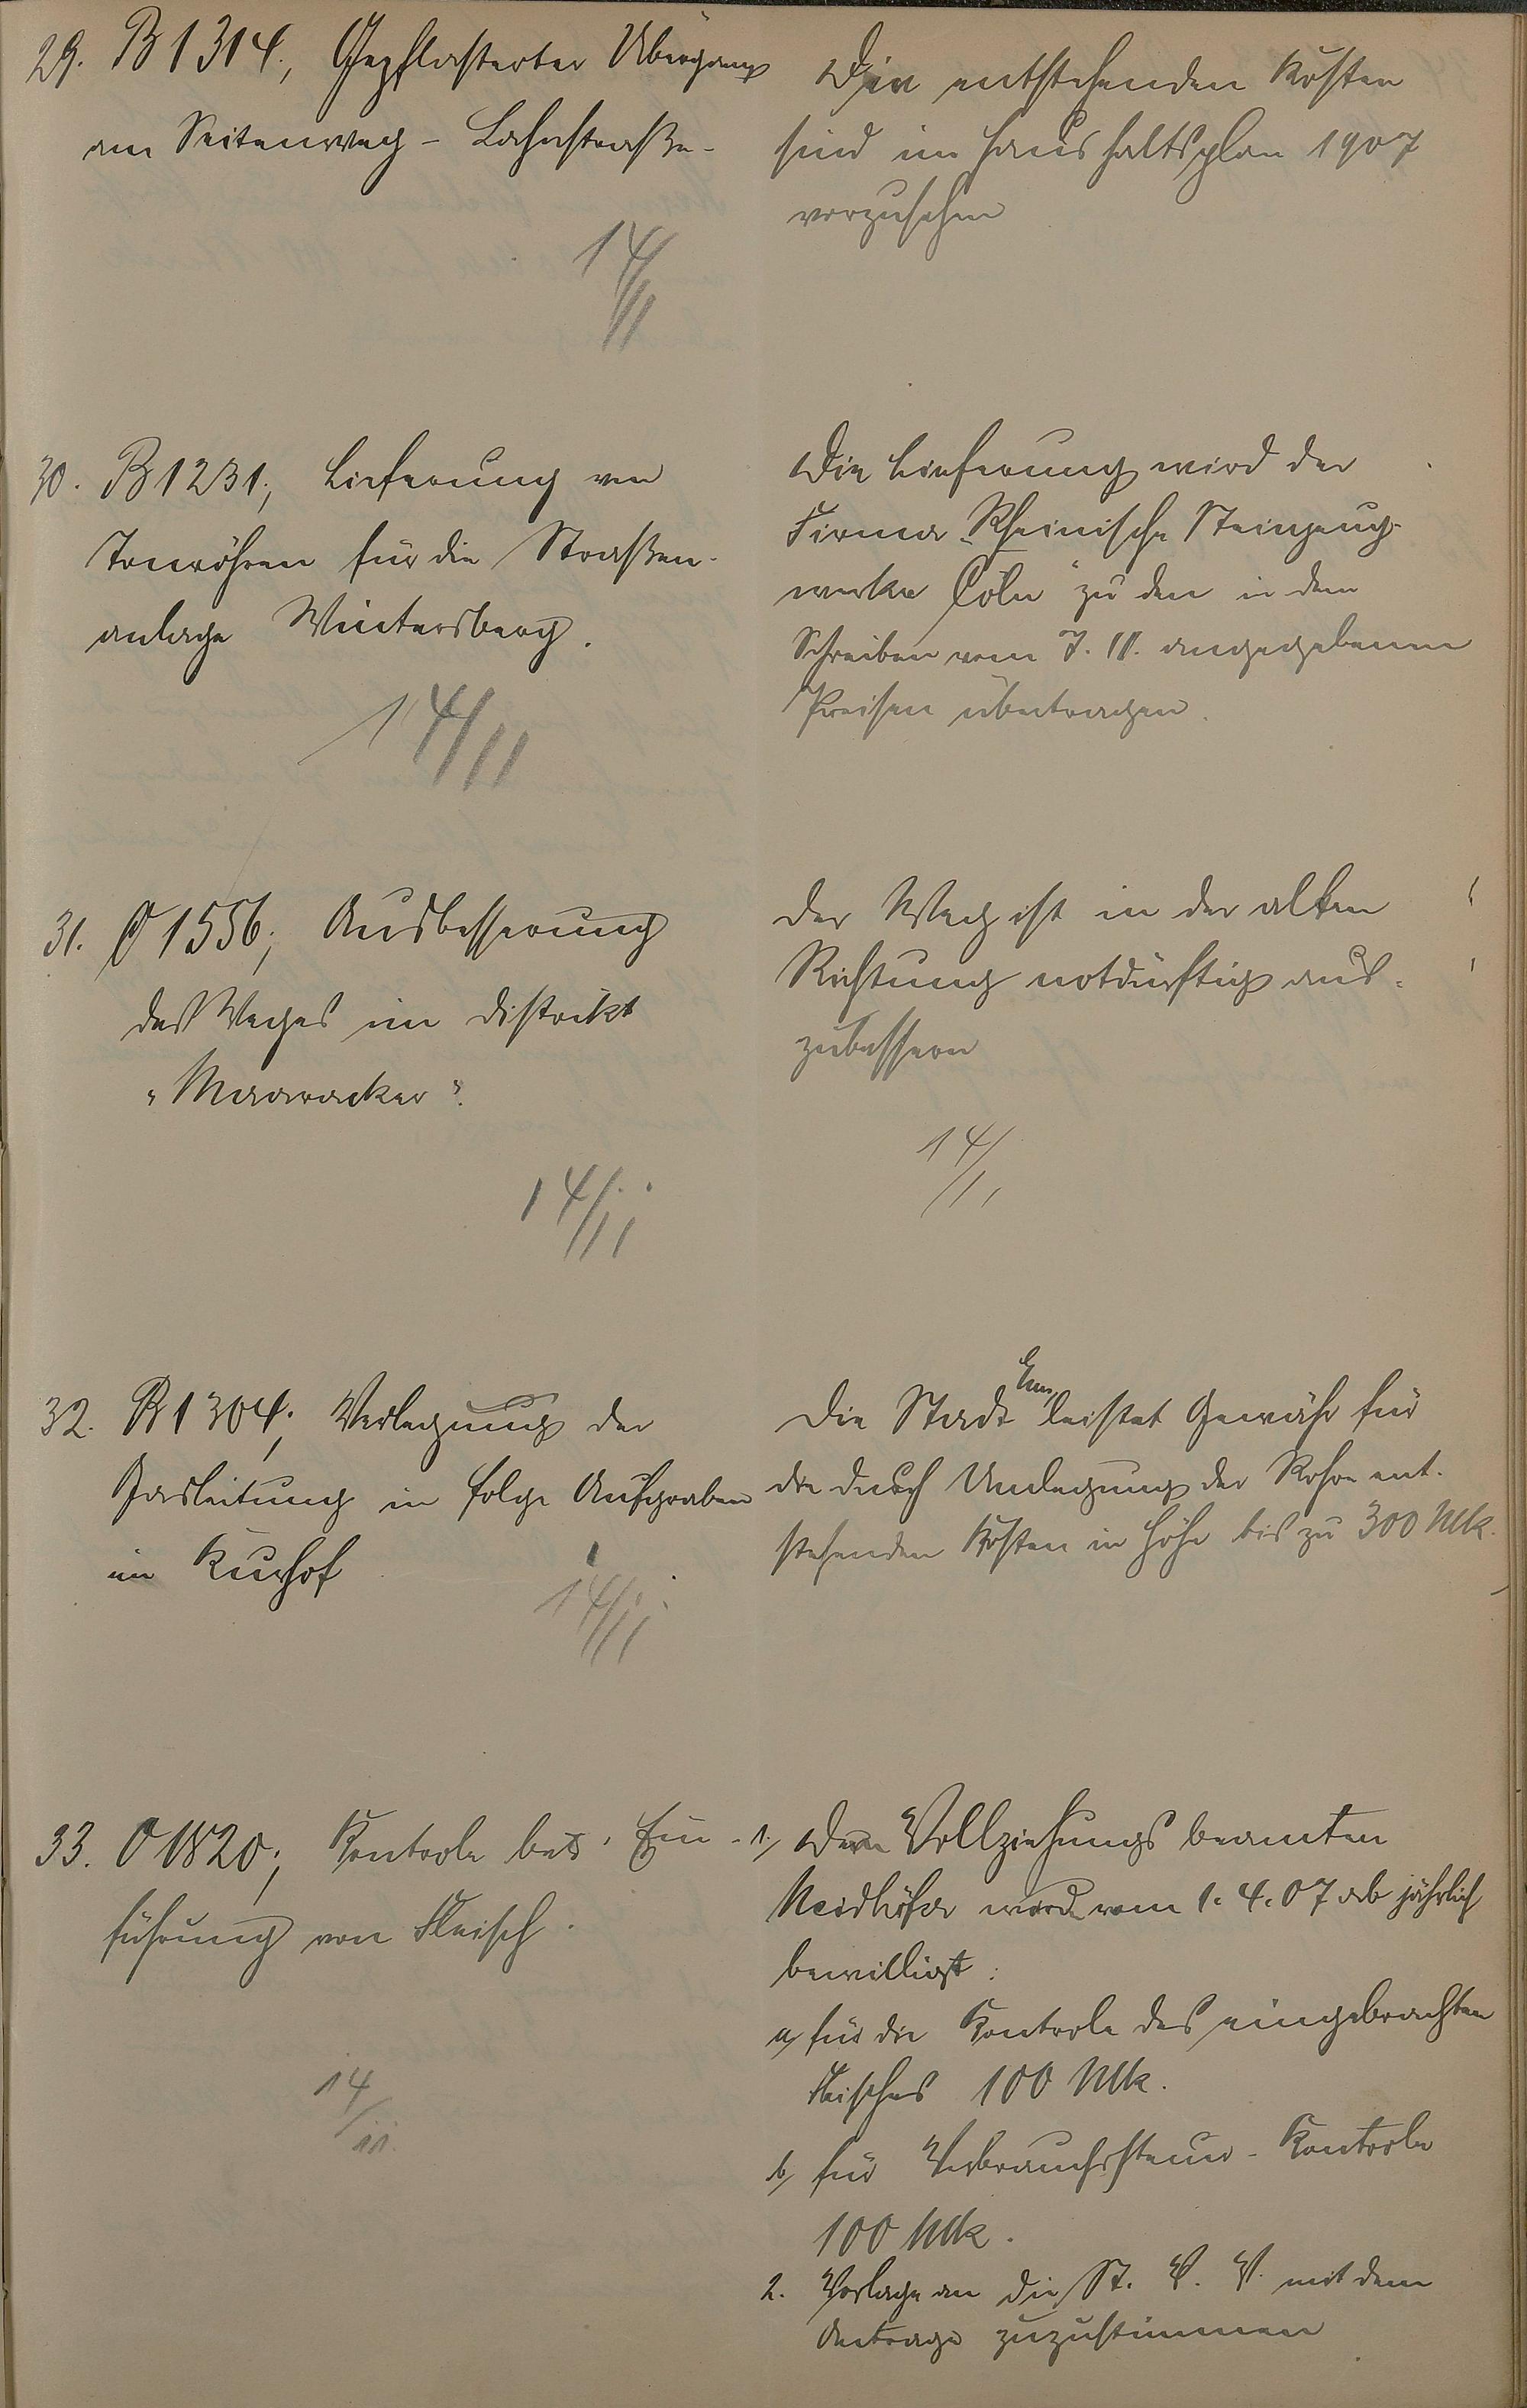 29. B 1314., Gepflasterter Übergang
am Seitenweg - Lahnstraße -
14/11
Die entstehenden Kosten
sind im Haushaltsplan 1907
vorzusehen
30. B 1231., Lieferung von
Tonröhren für die Straßen-
anlage Wintersberg.
14/11
Die Lieferung wird der
Firma „Rheinische Steinzeug-
werke Cöln“ zu den in dem
Schreiben vom 7. 11. angegebenen
Preisen übertragen.
31. O 1556; Ausbesserung
des Weges im Distrikt
„Maaracker“.
14/11
Der Weg ist in der alten
Richtung notdürftig aus-
zubessern
14/11
32. B 1304; Verlegung der
Gasleitung in folge Aufgraben
im Kurhof
14/11
Ems
Die Stadt leistet Gewähr für
die durch Umlegung der Rohre ent-
stehenden Kosten in Höhe bis zu 300 Mk.
33. O 1820; Kontrole bei Ein-
führung von Fleisch.
14/11.
1, Dem Vollziehungsbeamten
Neidhöfer wird vom 1. 4. 07 ab jährlich
bewilligt:
a, für die Kontrole des eingebrachten
Fleisches 100 Mk.
b, für Verbrauchssteuer-Kontrole
100 Mk.
2. Vorlage an die St. V. V. mit dem
Antrage zuzustimmen